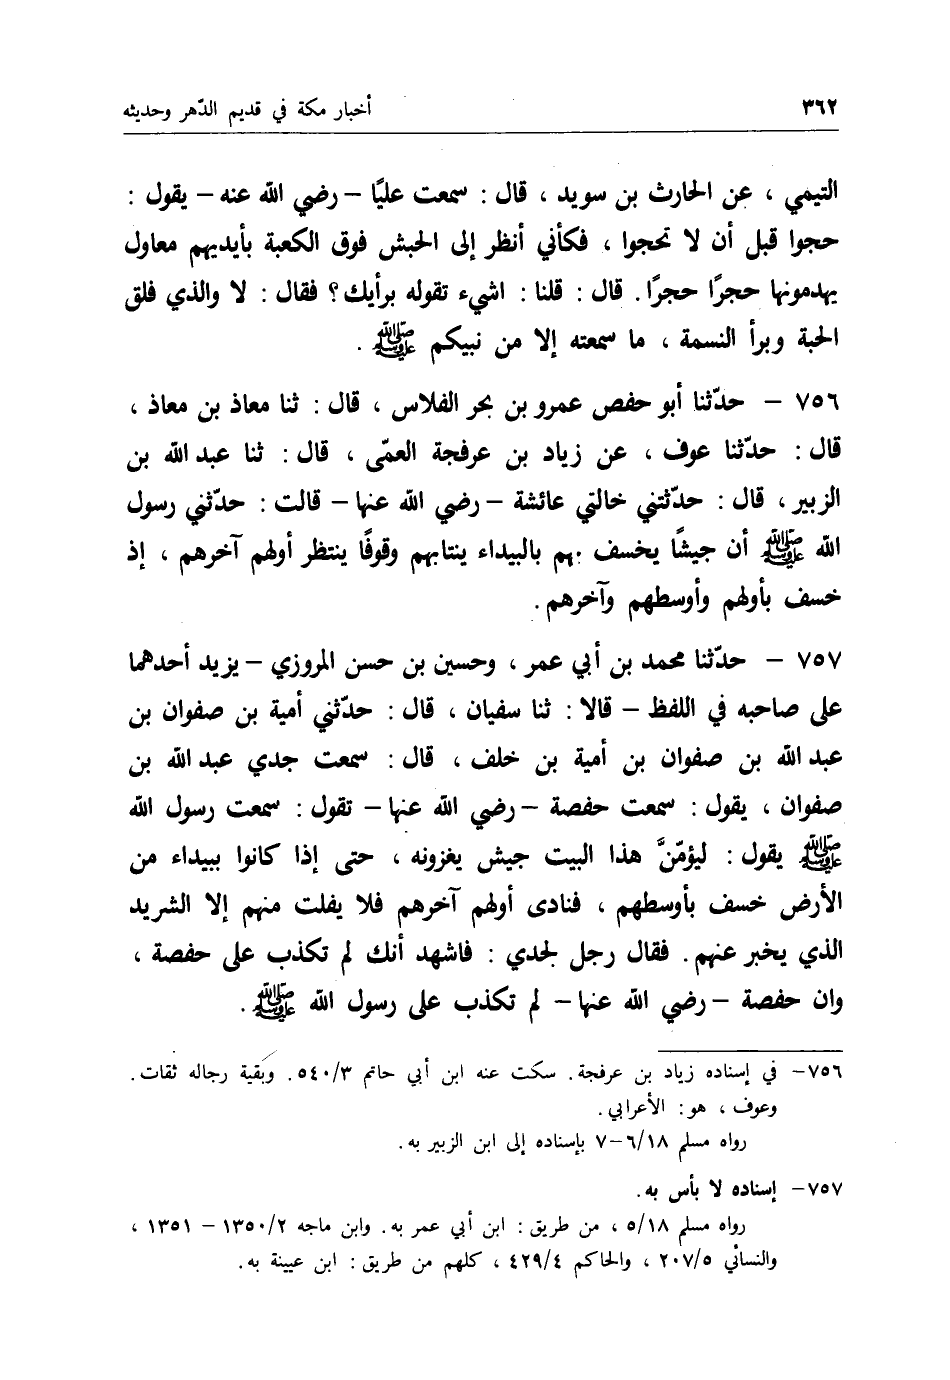 ٣٦٢ أخبار مكة في قديم الدّهر وحديثه
التيمي ، عن الحارث بن سويد ، قال : سمعت عليًا – رضي الله عنه – يقول :
حجوا قبل أن لا تحجوا ، فكأني أنظر إلى الحبش فوق الكعبة بأيديهم معاول
يهدمونها حجرًا حجرًا. قال : قلنا : اشيء تقوله برأيك؟ فقال : لا والذي فلق
الحبة وبرأ النسمة ، ما سمعته إلا من نبيكم ﷺ .
٧٥٦ – حدّثنا أبو حفص عمرو بن بحر الفلاس ، قال : ثنا معاذ بن معاذ ،
قال : حدّثنا عوف ، عن زياد بن عرفجة العمّى ، قال : ثنا عبد الله بن
الزبير ، قال : حدّثتني خالتي عائشة – رضي الله عنها – قالت : حدّثني رسول
الله ﷺ أن جيشًا يخسف بهم بالبيداء ينتابهم وقوفًا ينتظر أولهم آخرهم ، إذ
خسف بأولهم وأوسطهم وآخرهم .
٧٥٧ – حدّثنا محمد بن أبي عمر ، وحسين بن حسن المروزي – يزيد أحدهما
على صاحبه في اللفظ – قالا : ثنا سفيان ، قال : حدّثني أمية بن صفوان بن
عبد الله بن صفوان بن أمية بن خلف ، قال : سمعت جدي عبد الله بن
صفوان ، يقول : سمعت حفصة – رضي الله عنها – تقول : سمعت رسول الله
ﷺ يقول : ليؤمّنَّ هذا البيت جيش يغزونه ، حتى إذا كانوا ببيداء من
الأرض خسف بأوسطهم ، فنادى أولهم آخرهم فلا يفلت منهم إلا الشريد
الذي يخبر عنهم . فقال رجل لجدي : فاشهد أنك لم تكذب على حفصة ،
وان حفصة – رضي الله عنها – لم تكذب على رسول الله ﷺ .
٧٥٦– في إسناده زياد بن عرفجة . سكت عنه ابن أبي حاتم ٥٤٠/٣ . وبقية رجاله ثقات .
وعوف ، هو : الأعرابي .
رواه مسلم ٦/١٨–٧ بإسناده إلى ابن الزبير به .
٧٥٧– إسناده لا بأس به .
رواه مسلم ٥/١٨ ، من طريق : ابن أبي عمر به . وابن ماجه ١٣٥٠/٢ – ١٣٥١ ،
والنسائي ٢٠٧/٥ ، والحاكم ٤٢٩/٤ ، كلهم من طريق : ابن عيينة به .